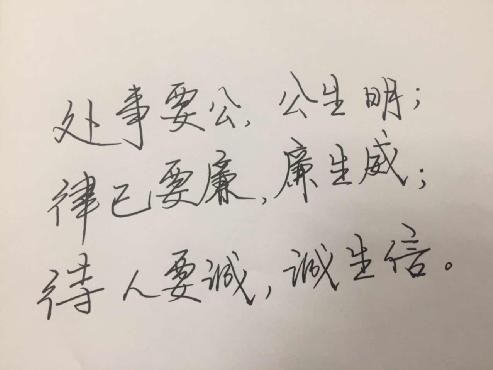 处事要公，公生明；
律己要廉，廉生威；
待人要诚，诚生信。